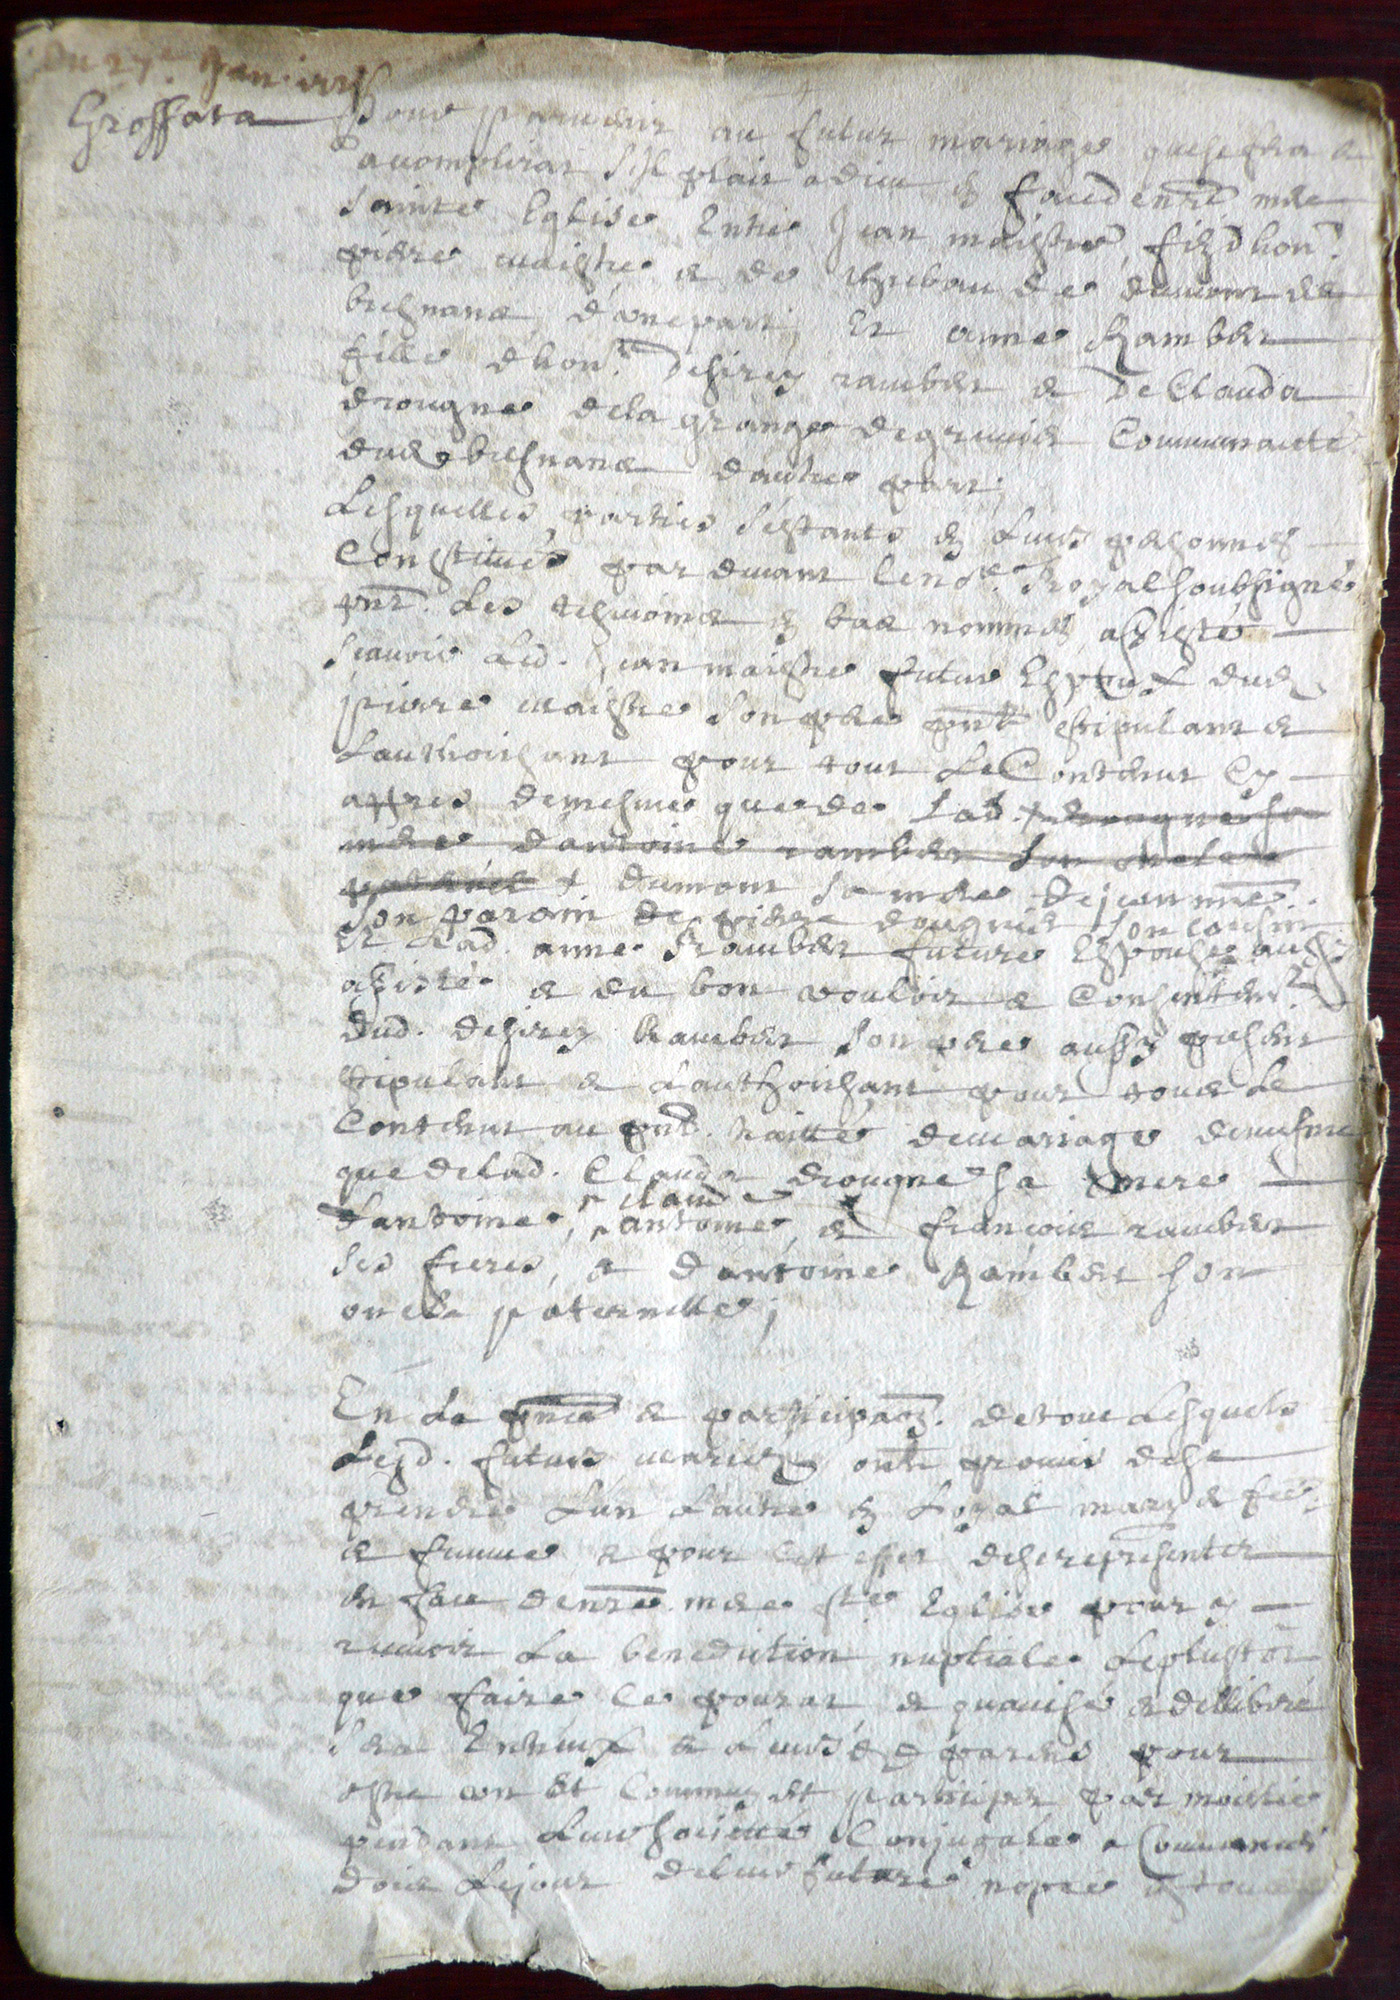 Du 27e Janvier
Grossata
Pour parvenir au futur mariage que se fera &
acomplirat s'il plait a dieu en face de nre mere
sainte Eglise Entre Jean maistre, filz d'hon.
pierre maistre & de dumont de
d'une part, Et anne Rambert
fille d'hon. desirez rambert & de Clauda
drougne de la grange de Communauté
dud d'autre part;
Lesquelles parties s'estants en leurs personnes
Constitués par devant le not. Royal soubsigné
pnt. Les tesmoins en bas nommés assisté
scavoir led. Jean maistre futur Espoux dud
pierre maistre son pere pnt stipulant &
L'authorisant pour tout Le Contenu Cy
apres de mesme que de lad. drougne sa
mere d'antoine rambert son oncle
paternel dumont sa mere de
son parain de pierre son cousin
Et Lad. anne Rambert future Espouse aussy
assisté & du bon vouloir & Consentem.
dud. desirez Rambert son pere aussy present
stipulant & L'authorisant pour tout Le
Contenu au pnt. traitté de mariage de mesme
que de lad. Clauda drougne sa mere
claude
d'antoine, antoine, & françois rambert
ses freres, & d'antoine Rambert son
oncle paternelle;
En La pnce & participaon. de tous Lesquels
Lesd. futurs mariez ont promis de se
prendre L'un L'autre en Loyal mary &
& femme & pour Cet effet de se representer
en face de nre mere ste Eglise pour y
recevoir La benediction nuptiale Le plustot
que faire Ce pourat & quavisé & dellibéré
sera Entreux & Leurs parens pour
estre un Et Commun Et participer par moitie
pendant Leur Conjugale &
dois Le jour de leur future nopce